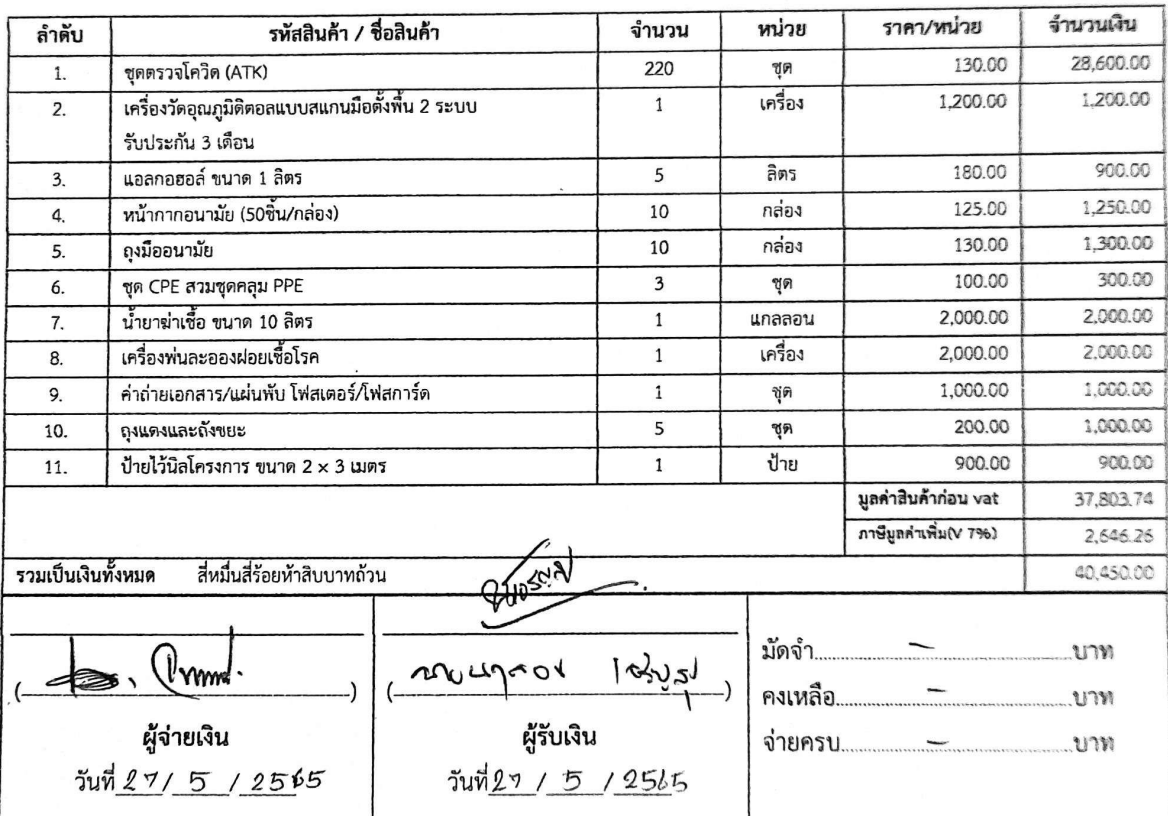 ลำดับ รหัสสินค้า / ชื่อสินค้า จำนวน หน่วย ราคา/หน่วย จำนวนเงิน
1. ชุดตรวจโควิด (ATK) 220 ชุด 130.00 28,600.00
2. เครื่องวัดอุณภูมิดิตอลแบบสแกนมือตั้งพื้น 2 ระบบ 1 เครื่อง 1,200.00 1,200.00
รับประกัน 3 เดือน
3. แอลกอฮอล์ ขนาด 1 ลิตร 5 ลิตร 180.00 900.00
4. หน้ากากอนามัย (50ชิ้น/กล่อง) 10 กล่อง 125.00 1,250.00
5. ถุงมืออนามัย 10 กล่อง 130.00 1,300.00
6. ชุด CPE สวมชุดคลุม PPE 3 ชุด 100.00 300.00
7. น้ำยาฆ่าเชื้อ ขนาด 10 ลิตร 1 แกลลอน 2,000.00 2,000.00
8. เครื่องพ่นละอองฝอยเชื้อโรค 1 เครื่อง 2,000.00 2,000.00
9. ค่าถ่ายเอกสาร/แผ่นพับ โฟสเตอร์/โฟสการ์ด 1 ชุด 1,000.00 1,000.00
10. ถุงแดงและถังขยะ 5 ชุด 200.00 1,000.00
11. ป้ายไว้นิลโครงการ ขนาด 2 × 3 เมตร 1 ป้าย 900.00 900.00
มูลค่าสินค้าก่อน vat 37,803.74
ภาษีมูลค่าเพิ่ม(V 7%) 2,646.26
รวมเป็นเงินทั้งหมด สี่หมื่นสี่ร้อยห้าสิบบาทถ้วน 40,450.00
มัดจำ - บาท
คงเหลือ - บาท
จ่ายครบ - บาท
ผู้จ่ายเงิน ผู้รับเงิน
วันที่ 27 / 5 / 2565 วันที่ 27 / 5 / 2565